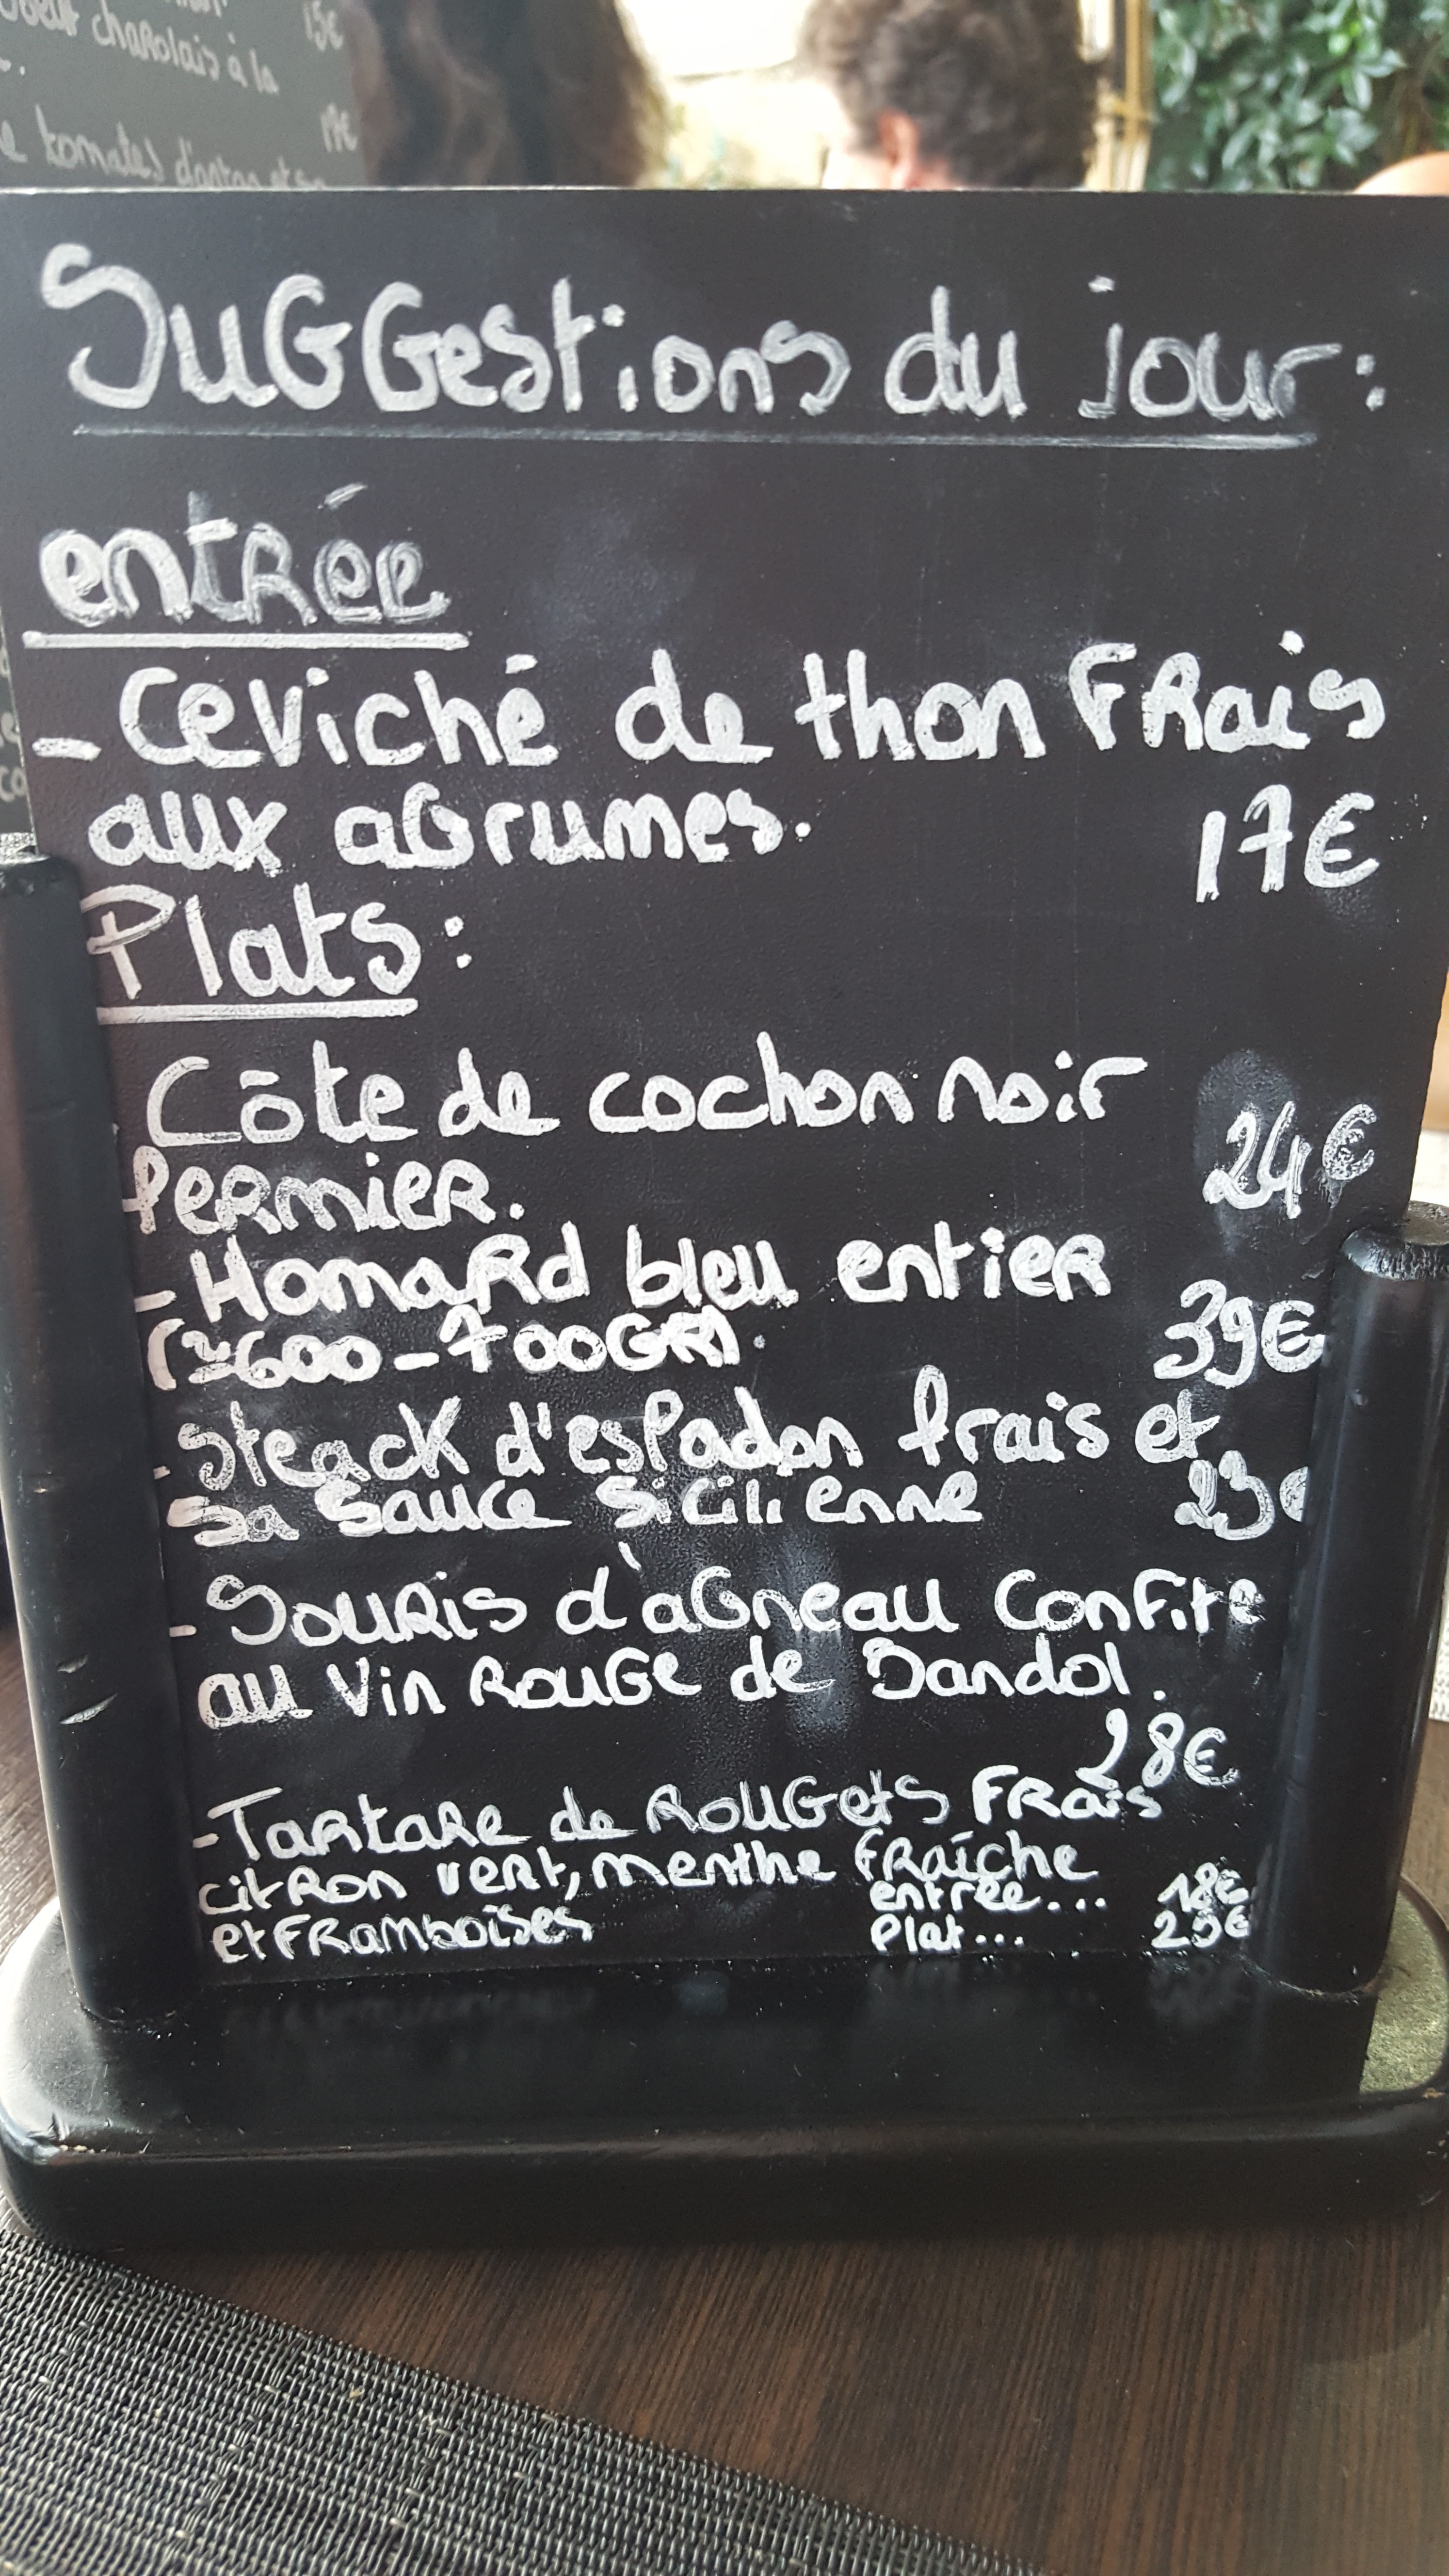 15€
charolais à la
17€
e tomates
Suggestions du jour :
entrée
- Ceviché de thon frais
aux agrumes. 17€
Plats :
Côte de cochon noir
fermier. 24€
- Homard bleu entier
(≈600-700GR). 39€
- Steack d'espadon frais et
sa sauce sicilienne 23€
- Souris d'agneau confite
au vin rouge de Bandol.
28€
- Tartare de rougets frais
citron vert, menthe fraîche
entrée... 18€
et framboises plat... 29€